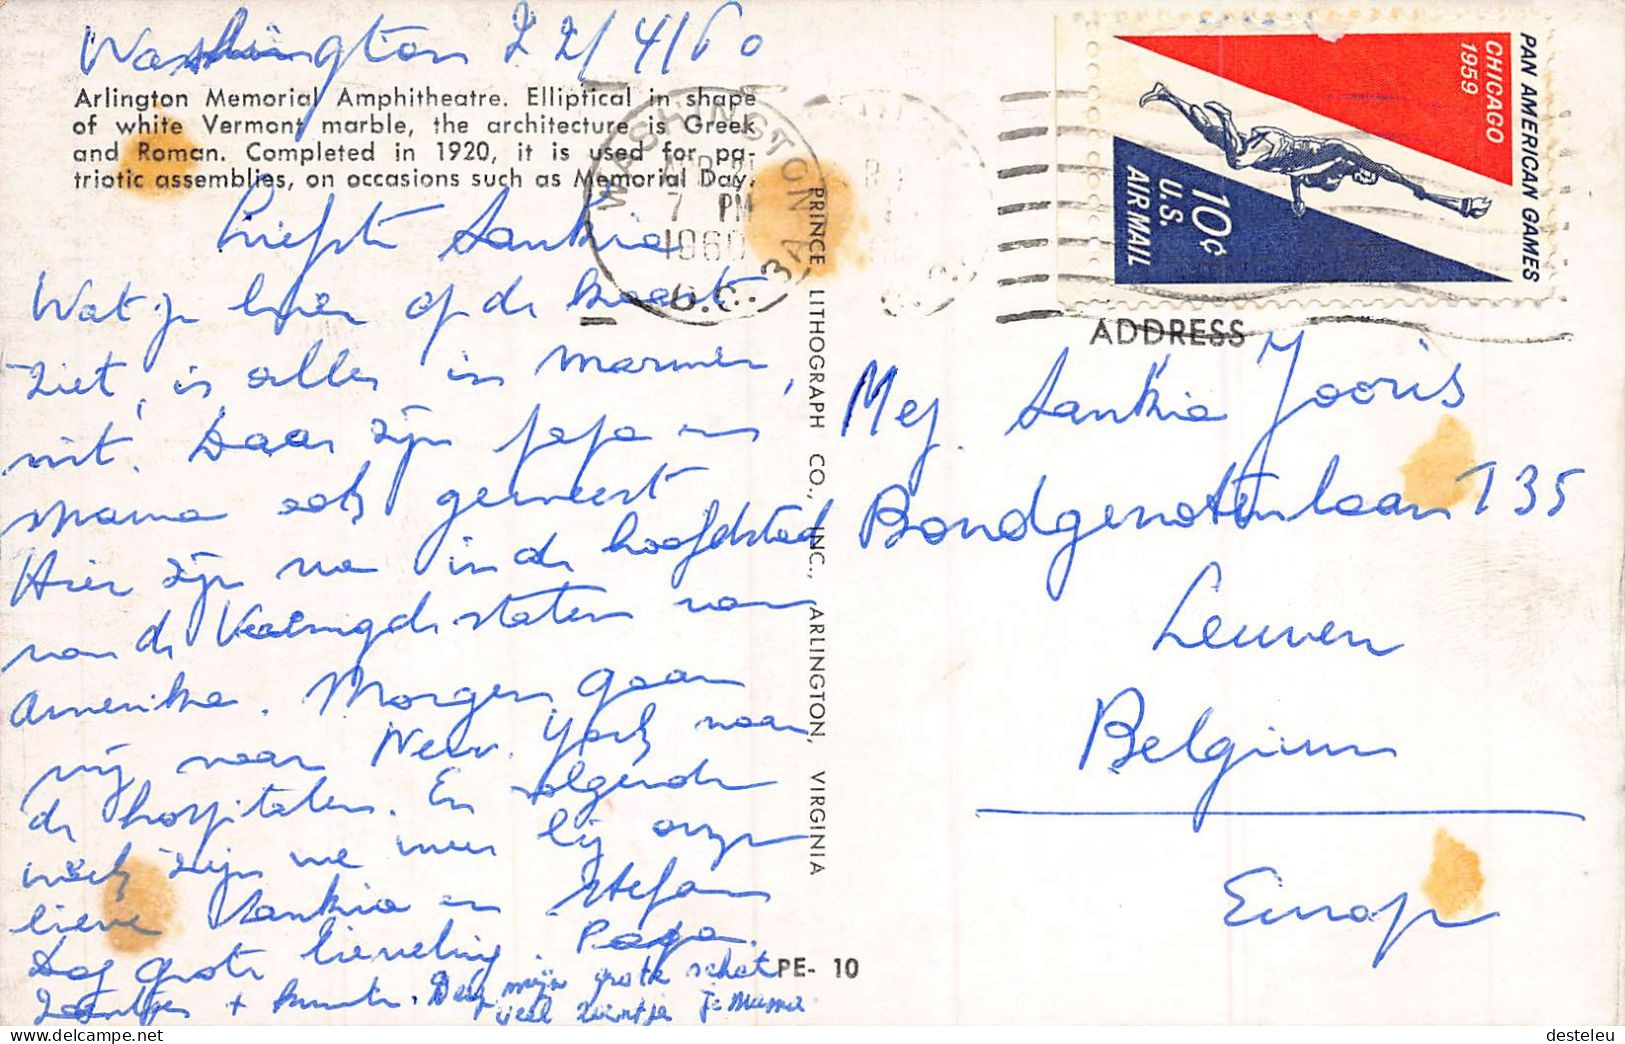 Washington 22/4/60
Arlington Memorial Amphitheatre. Elliptical in shape
of white Vermont marble, the architecture is Greek
and Roman. Completed in 1920, it is used for pa-
triotic assemblies, on occasions such as Memorial Day.
Liefste Sankia
Wat je hier op de kaart
ziet, is alles in marmer,
uit. Daar zijn papa en
mama ook geweest
Hier zijn we in de hoofdstad
van de Verenigde staten van
Amerika. Morgen gaan
wij naar New-York naar
de hospitalen. En volgende
week zijn we weer bij onze
lieve Sankia en Stefan
Dag grote lieveling. Papa.
Zoentjes + Dag mijn grote schat
veel zoentje Mama
PRINCE LITHOGRAPH CO., INC., ARLINGTON, VIRGINIA
PE- 10
WASHINGTON
APR 21
7 PM
1960
D.C. 3A
PAN AMERICAN GAMES
CHICAGO
1959
10¢
U.S.
AIR MAIL
ADDRESS
Mej. Sankia Jooris
Bondgenotenlaan 135
Leuven
Belgium
Europe
https://www.delcampe.net
desteleu